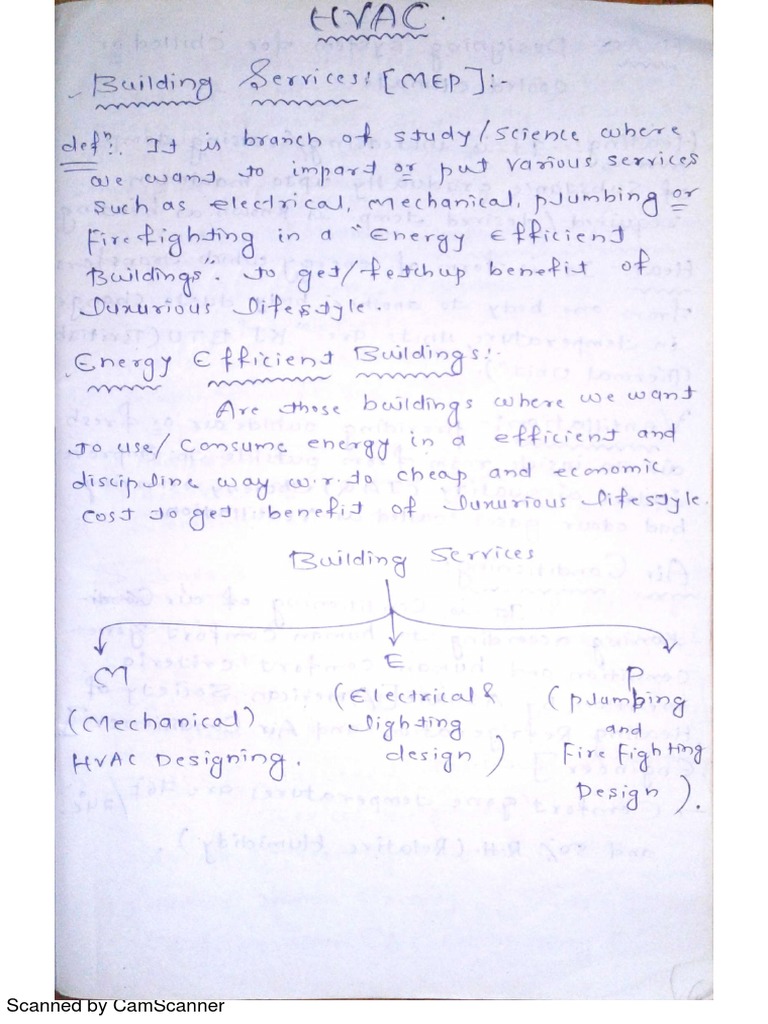 HVAC.
Building Services: [MEP]:-
defⁿ:. It is branch of study/science where
we want to impart or put various services
such as electrical, mechanical, plumbing or
Fire fighting in a "Energy Efficient
Buildings. to get/fetchup benefit of
luxurious lifestyle.
Energy Efficient Buildings:-
Are those buildings where we want
to use/consume energy in a efficient and
discipline way w.r.to cheap and economic
cost to get benefit of luxurious lifestyle.
Building Services
M E P
(Mechanical) (Electrical & (plumbing
HVAC Designing. lighting and
design) Fire Fighting
Design).
Scanned by CamScanner